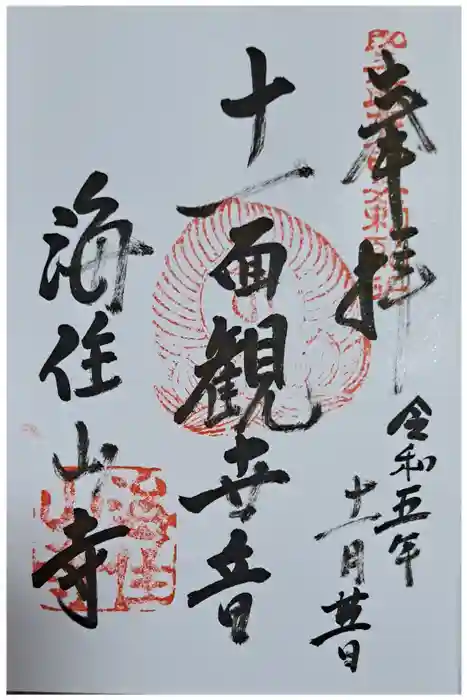 奉拝
令和五年
十一月廿日
十一面観世音
海住山寺
海住山寺